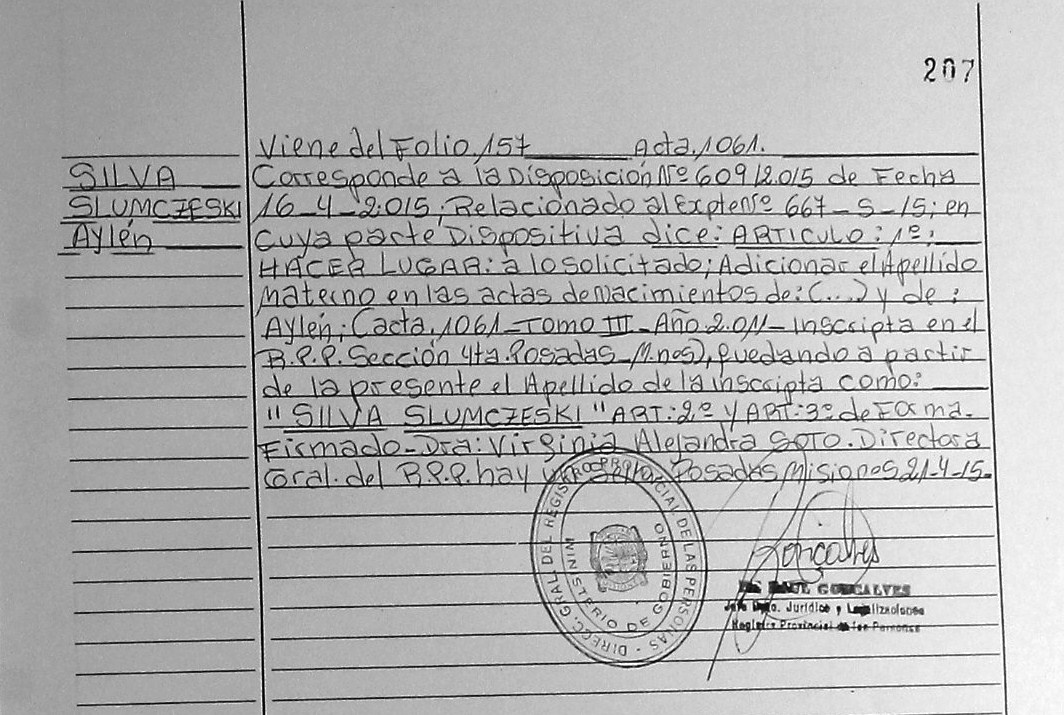 207
Viene del Folio. 157 Acta. 1061.
SILVA
SLUMCZESKI
Aylén
Corresponde a la Disposición Nº 609/2.015 de Fecha
16_4_2.015; Relacionado al Expte nº 667_S_15; en
cuya parte Dispositiva dice: ARTICULO: 1º:
HACER LUGAR: a lo solicitado; Adicionar el Apellido
Materno en las actas de nacimientos de: (...) y de:
Aylén; (acta. 1061_Tomo III_Año 2.011_Inscripta en el
R.P.P. Sección 4ta. Posadas_M.nes), quedando a partir
de la presente el Apellido de la inscripta como:
"SILVA SLUMCZESKI" ART: 2º Y ART: 3º de Forma.
Firmado_Dra: Virginia Alejandra SOTO. Directora
Gral. del R.P.P. hay un sello Posadas Misiones 21-4-15.
DIRECC. GRAL DEL REGISTRO PROVINCIAL DE LAS PERSONAS -
MINISTERIO DE GOBIERNO
Gonçalves
RAUL GONCALVES
Jefe Dpto. Jurídico y Legalizaciones
Registro Provincial de las Personas